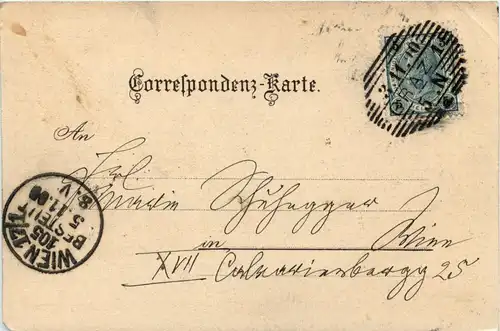 Correspondenz-Karte.
An
Frl.
Marie Schuhegger
in Wien
XVII Calvarienbergg 25
WIEN 17/1
105
BESTELLT
5.11.00
8.V
GRAZ